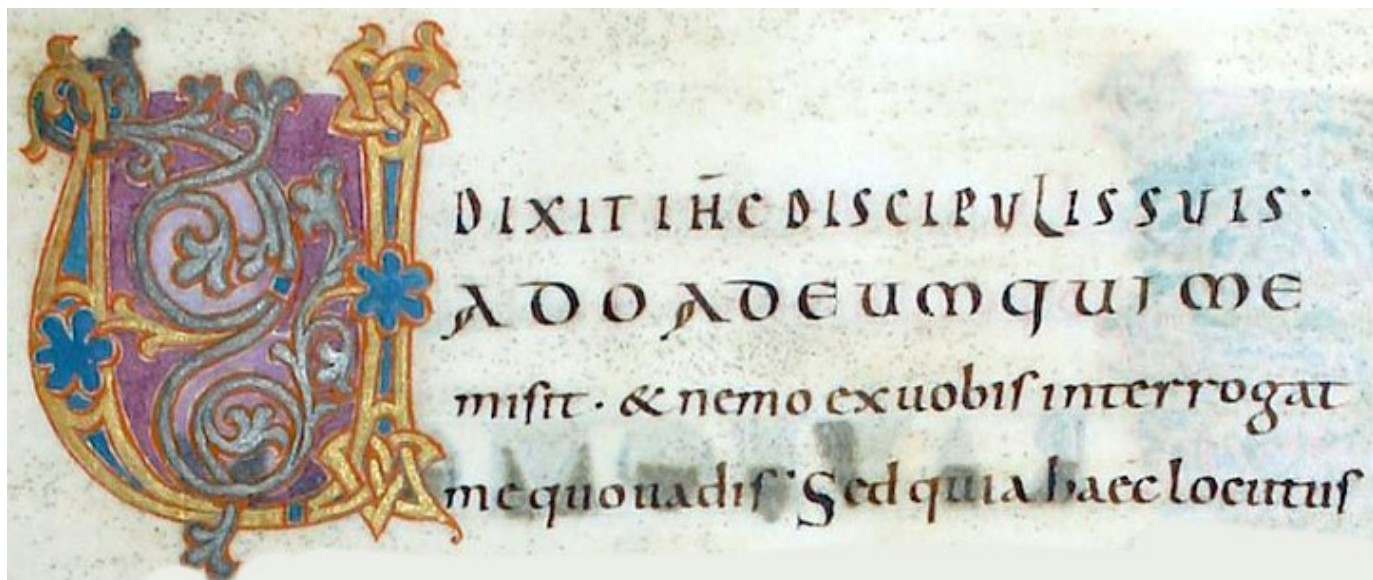 DIXIT IH̄C DISCIPULIS SUIS·
UADO AD EUM QUI ME
misit · & nemo ex uobis interrogat
me quo uadis · Sed quia haec locutus